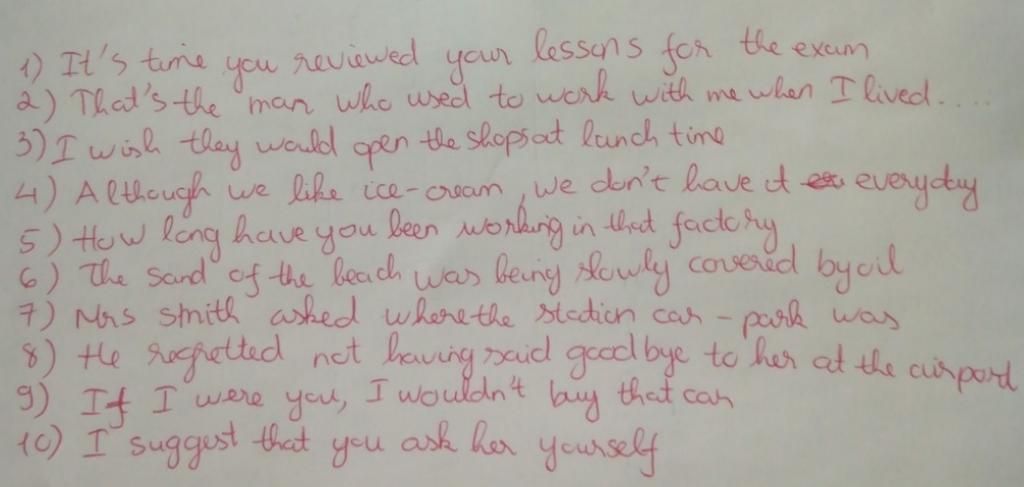 1) It's time you reviewed your lessons for the exam
2) That's the man who used to work with me when I lived....
3) I wish they would open the shops at lunch time
4) Although we like ice-cream, we don't have it everyday
5) How long have you been working in that factory
6) The sand of the beach was being slowly covered by oil
7) Mrs Smith asked where the station car-park was
8) He regretted not having said good bye to her at the airport
9) If I were you, I wouldn't buy that car
10) I suggest that you ask her yourself